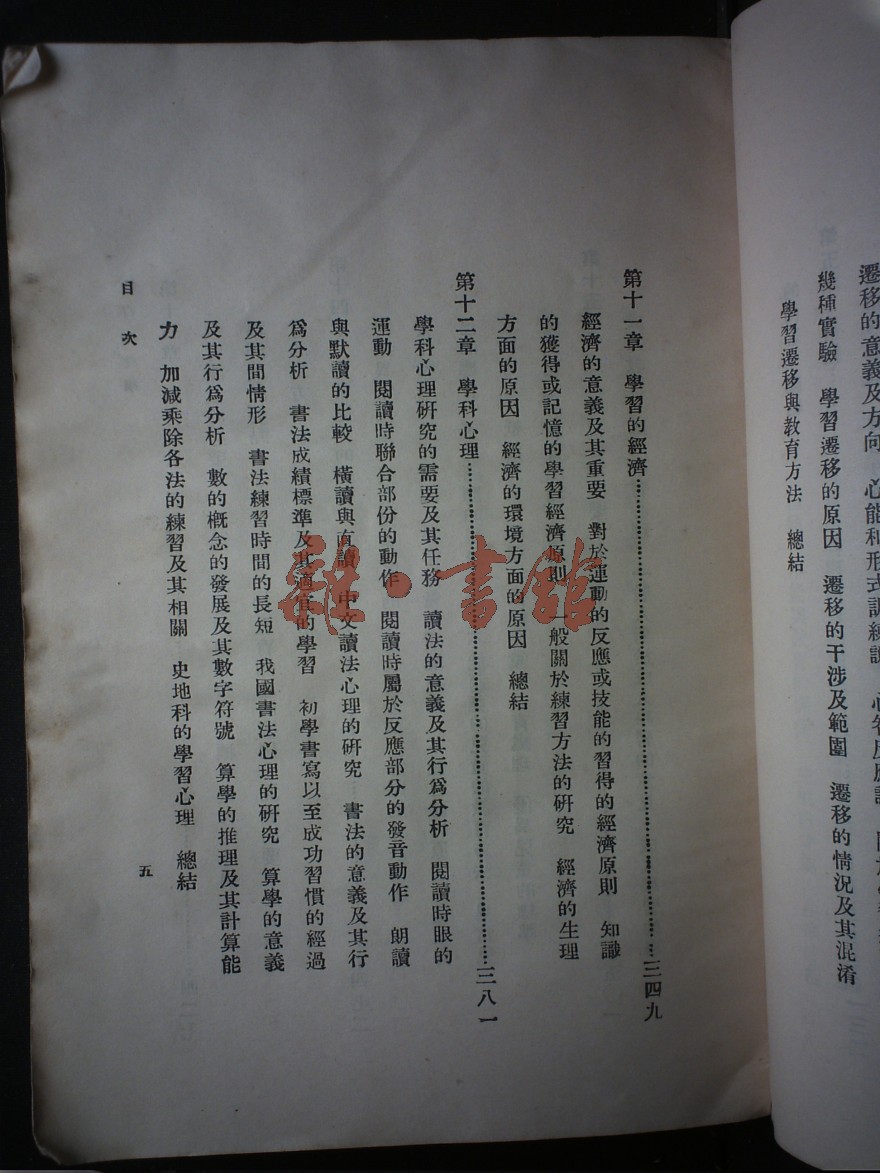 遷移的意義及方向
幾種實驗　學習遷移的原因　遷移的干涉及範圍　遷移的情況及其混淆
學習遷移與教育方法　總結
第十一章　學習的經濟…………三四九
經濟的意義及其重要　對於運動的反應或技能的習得的經濟原則　知識
的獲得或記憶的學習經濟原則　一般關於練習方法的研究　經濟的生理
方面的原因　經濟的環境方面的原因　總結
第十二章　學科心理…………三八一
學科心理研究的需要及其任務　讀法的意義及其行爲分析　閱讀時眼的
運動　閱讀時聯合部份的動作　閱讀時屬於反應部分的發音動作　朗讀
與默讀的比較　橫讀與直讀　中文讀法心理的研究　書法的意義及其行
爲分析　書法成績標準及其適宜的學習　初學書寫以至成功習慣的經過
及其間情形　書法練習時間的長短　我國書法心理的研究　算學的意義
及其行爲分析　數的概念的發展及其數字符號　算學的推理及其計算能
力　加減乘除各法的練習及其相關　史地科的學習心理　總結
目次
五
雜·書館